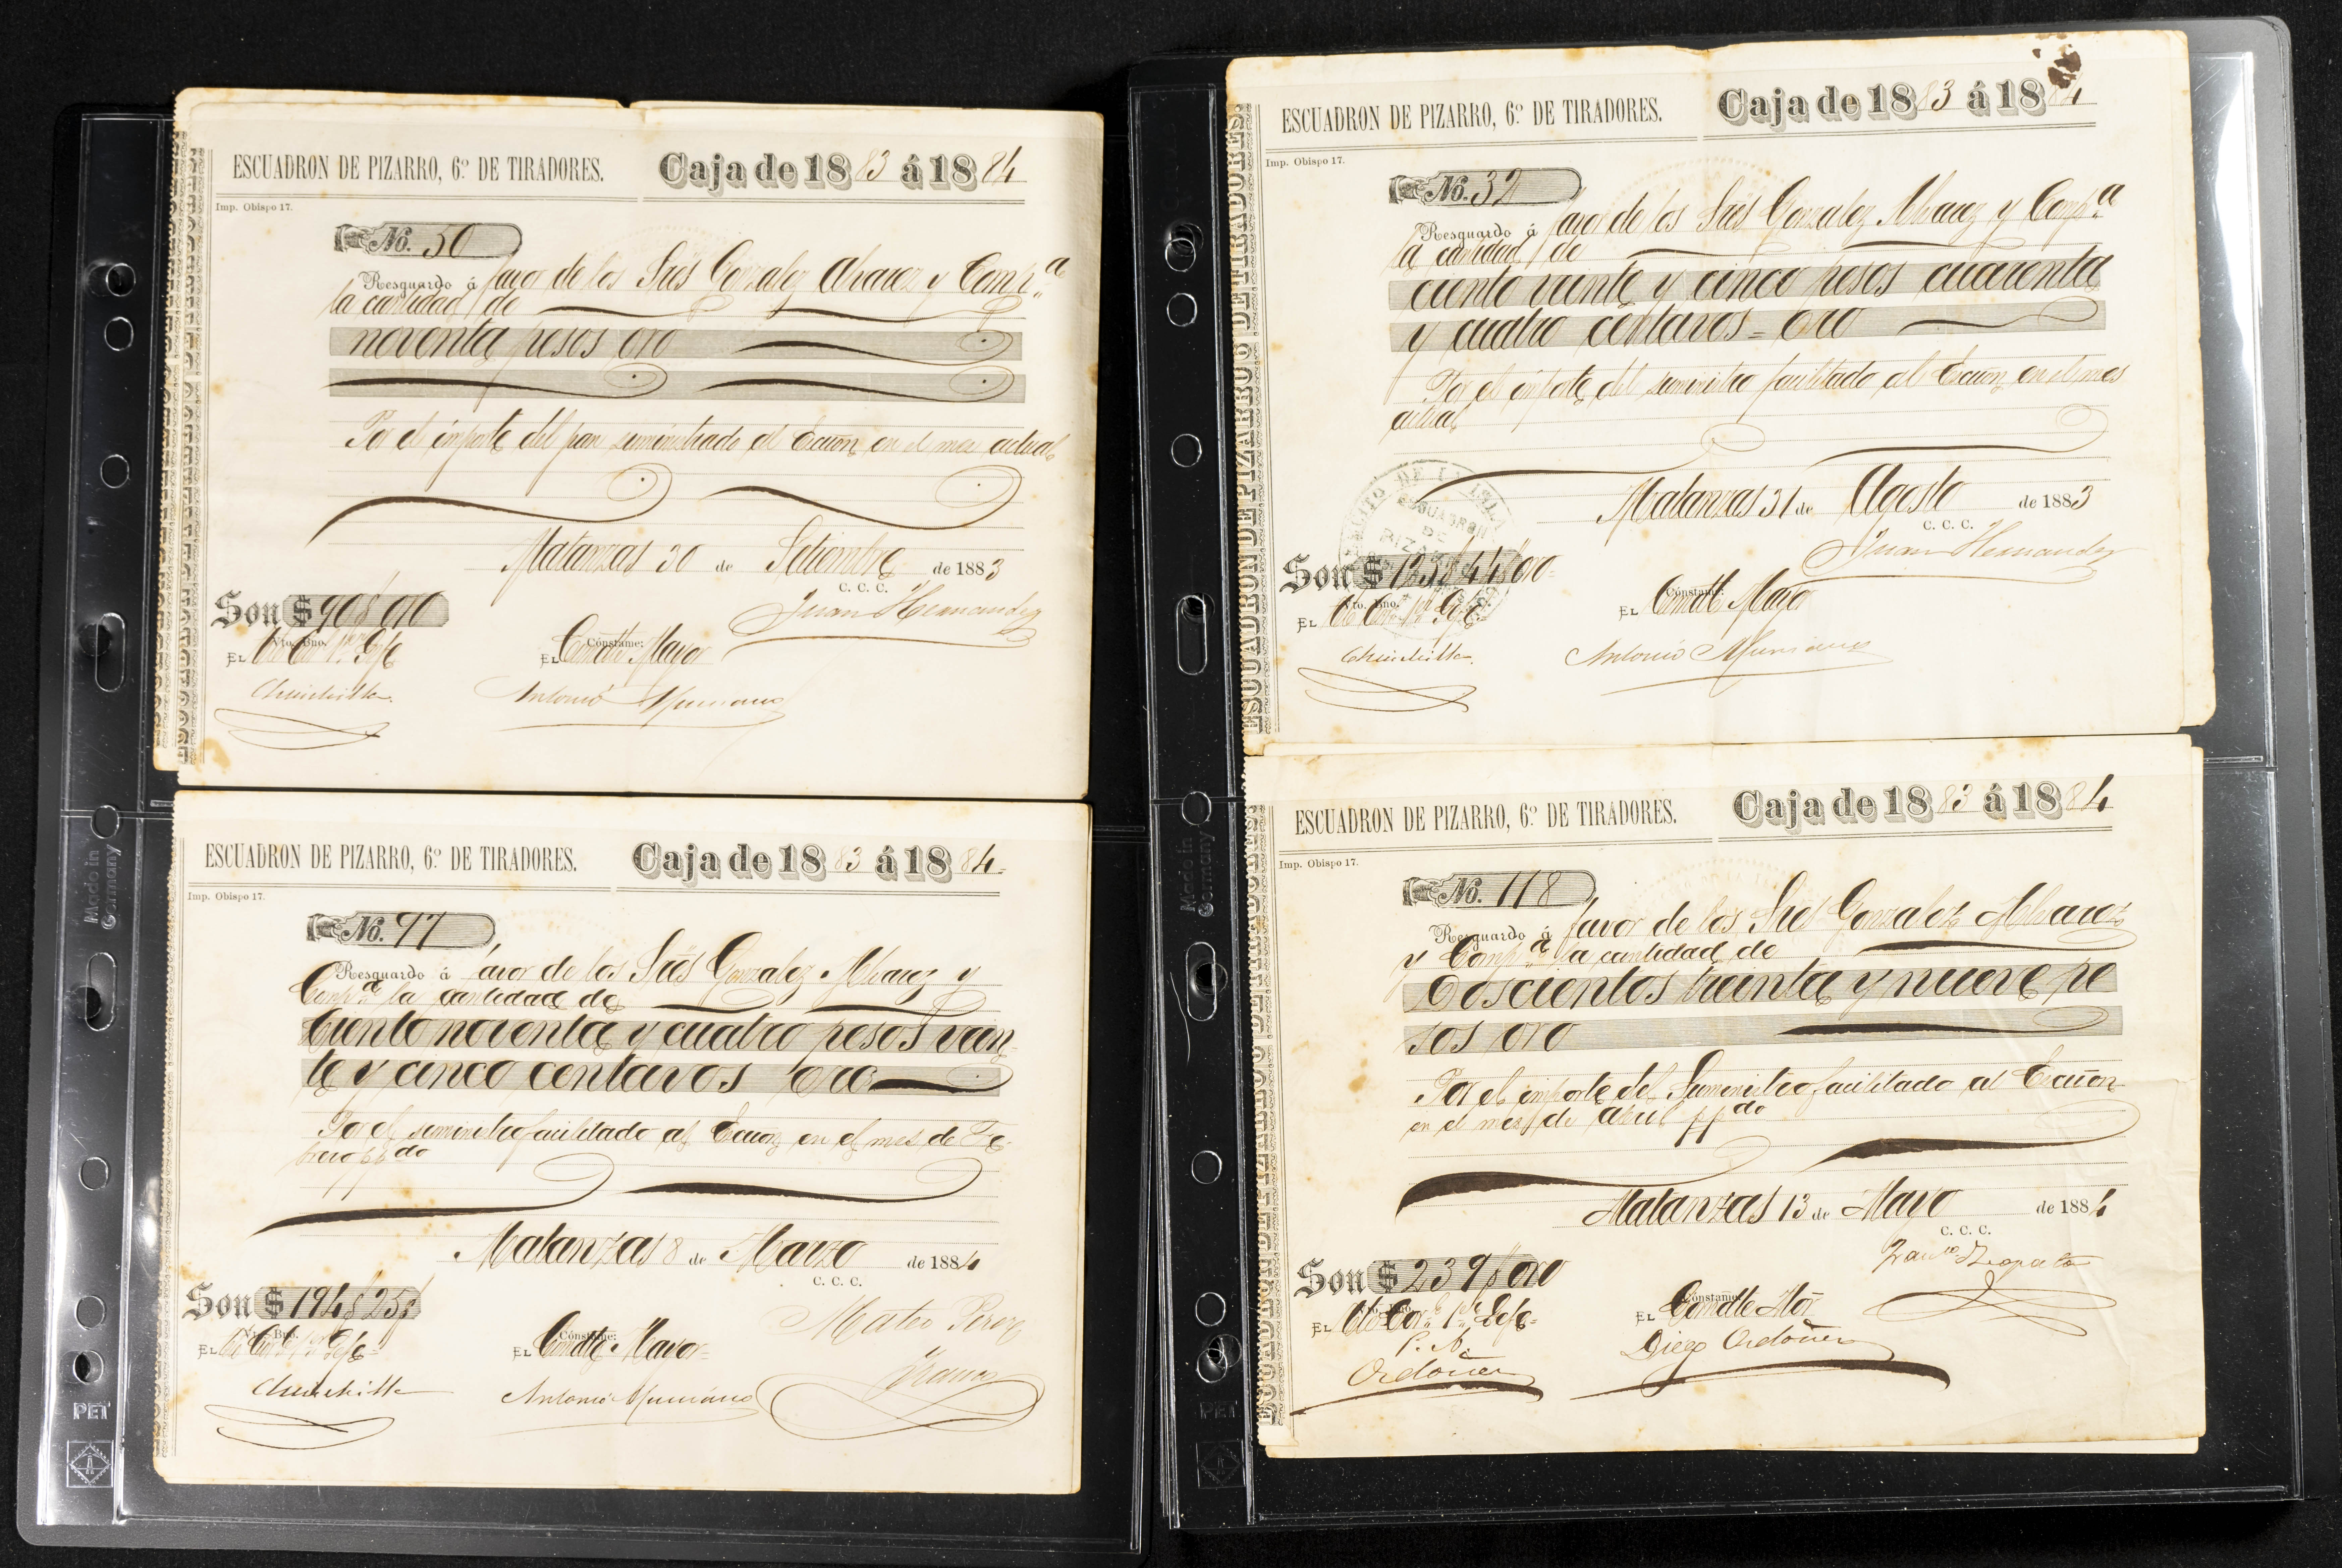 ESCUADRON DE PIZARRO, 6.º DE TIRADORES. Caja de 1883 á 1884
Imp. Obispo 17.
No. 50
Resguardo á favor de los Sres Gonzalez Alvarez y Comp.a
la cantidad de
noventa pesos oro
Por el importe del pan suministrado al Escuon en el mes actual
Matanzas 30 de Setiembre de 1883
C. C. C.
Juan Hernandez
Son $ 90 $ oro
Vto. Bno.
El Tte Cor.l 1.er Gefe
Cónstame:
El Comdte Mayor
Chinchilla
Antonio Muniano
ESCUADRON DE PIZARRO, 6.º DE TIRADORES. Caja de 1883 á 1884
Imp. Obispo 17.
No. 97
Resguardo á favor de los Sres Gonzalez Alvarez y
Comp.a la cantidad de
Ciento noventa y cuatro pesos vein-
te y cinco centavos oro
Por el suministro facilitado al Escuon en el mes de Fe-
brero ppdo
Matanzas 8 de Marzo de 1884
C. C. C.
Mateo Perez
Son $ 194 $ 25
Vto. Bno.
El Tte Cor.l 1.er Gefe
Cónstame:
El Comdte Mayor
Chinchilla
Antonio Muniano
ESCUADRON DE PIZARRO, 6.º DE TIRADORES. Caja de 1883 á 1884
Imp. Obispo 17.
No. 32
Resguardo á favor de los Sres Gonzalez Alvarez y Comp.a
la cantidad de
ciento veinte y cinco pesos cuarenta
y cuatro centavos = oro
Por el importe del suministro facilitado al Escuon en el mes
actual
Matanzas 31 de Agosto de 1883
C. C. C.
Juan Hernandez
Son $ 125 $ 44 oro
Vto. Bno.
El Tte Cor.l 1.er Gefe
Cónstame:
El Comdte Mayor
Chinchilla
Antonio Muniano
ESCUADRON DE PIZARRO, 6.º DE TIRADORES. Caja de 1883 á 1884
Imp. Obispo 17.
No. 118
Resguardo á favor de los Sres Gonzalez Alvarez
y Comp.a la cantidad de
Doscientos treinta y nueve pe
sos oro
Por el importe del Suministro facilitado al Escuon
en el mes de Abril ppdo
Matanzas 13 de Mayo de 1884
C. C. C.
Son $ 239 $ oro
El Tte Cor.l 1.er Gefe
P. A.
Ordoñez
Cónstame:
El Comdte Mor
Diego Ordoñez
ESCUADRON DE PIZARRO 6º DE TIRADORES
Made in Germany
PET
Made in Germany
PET